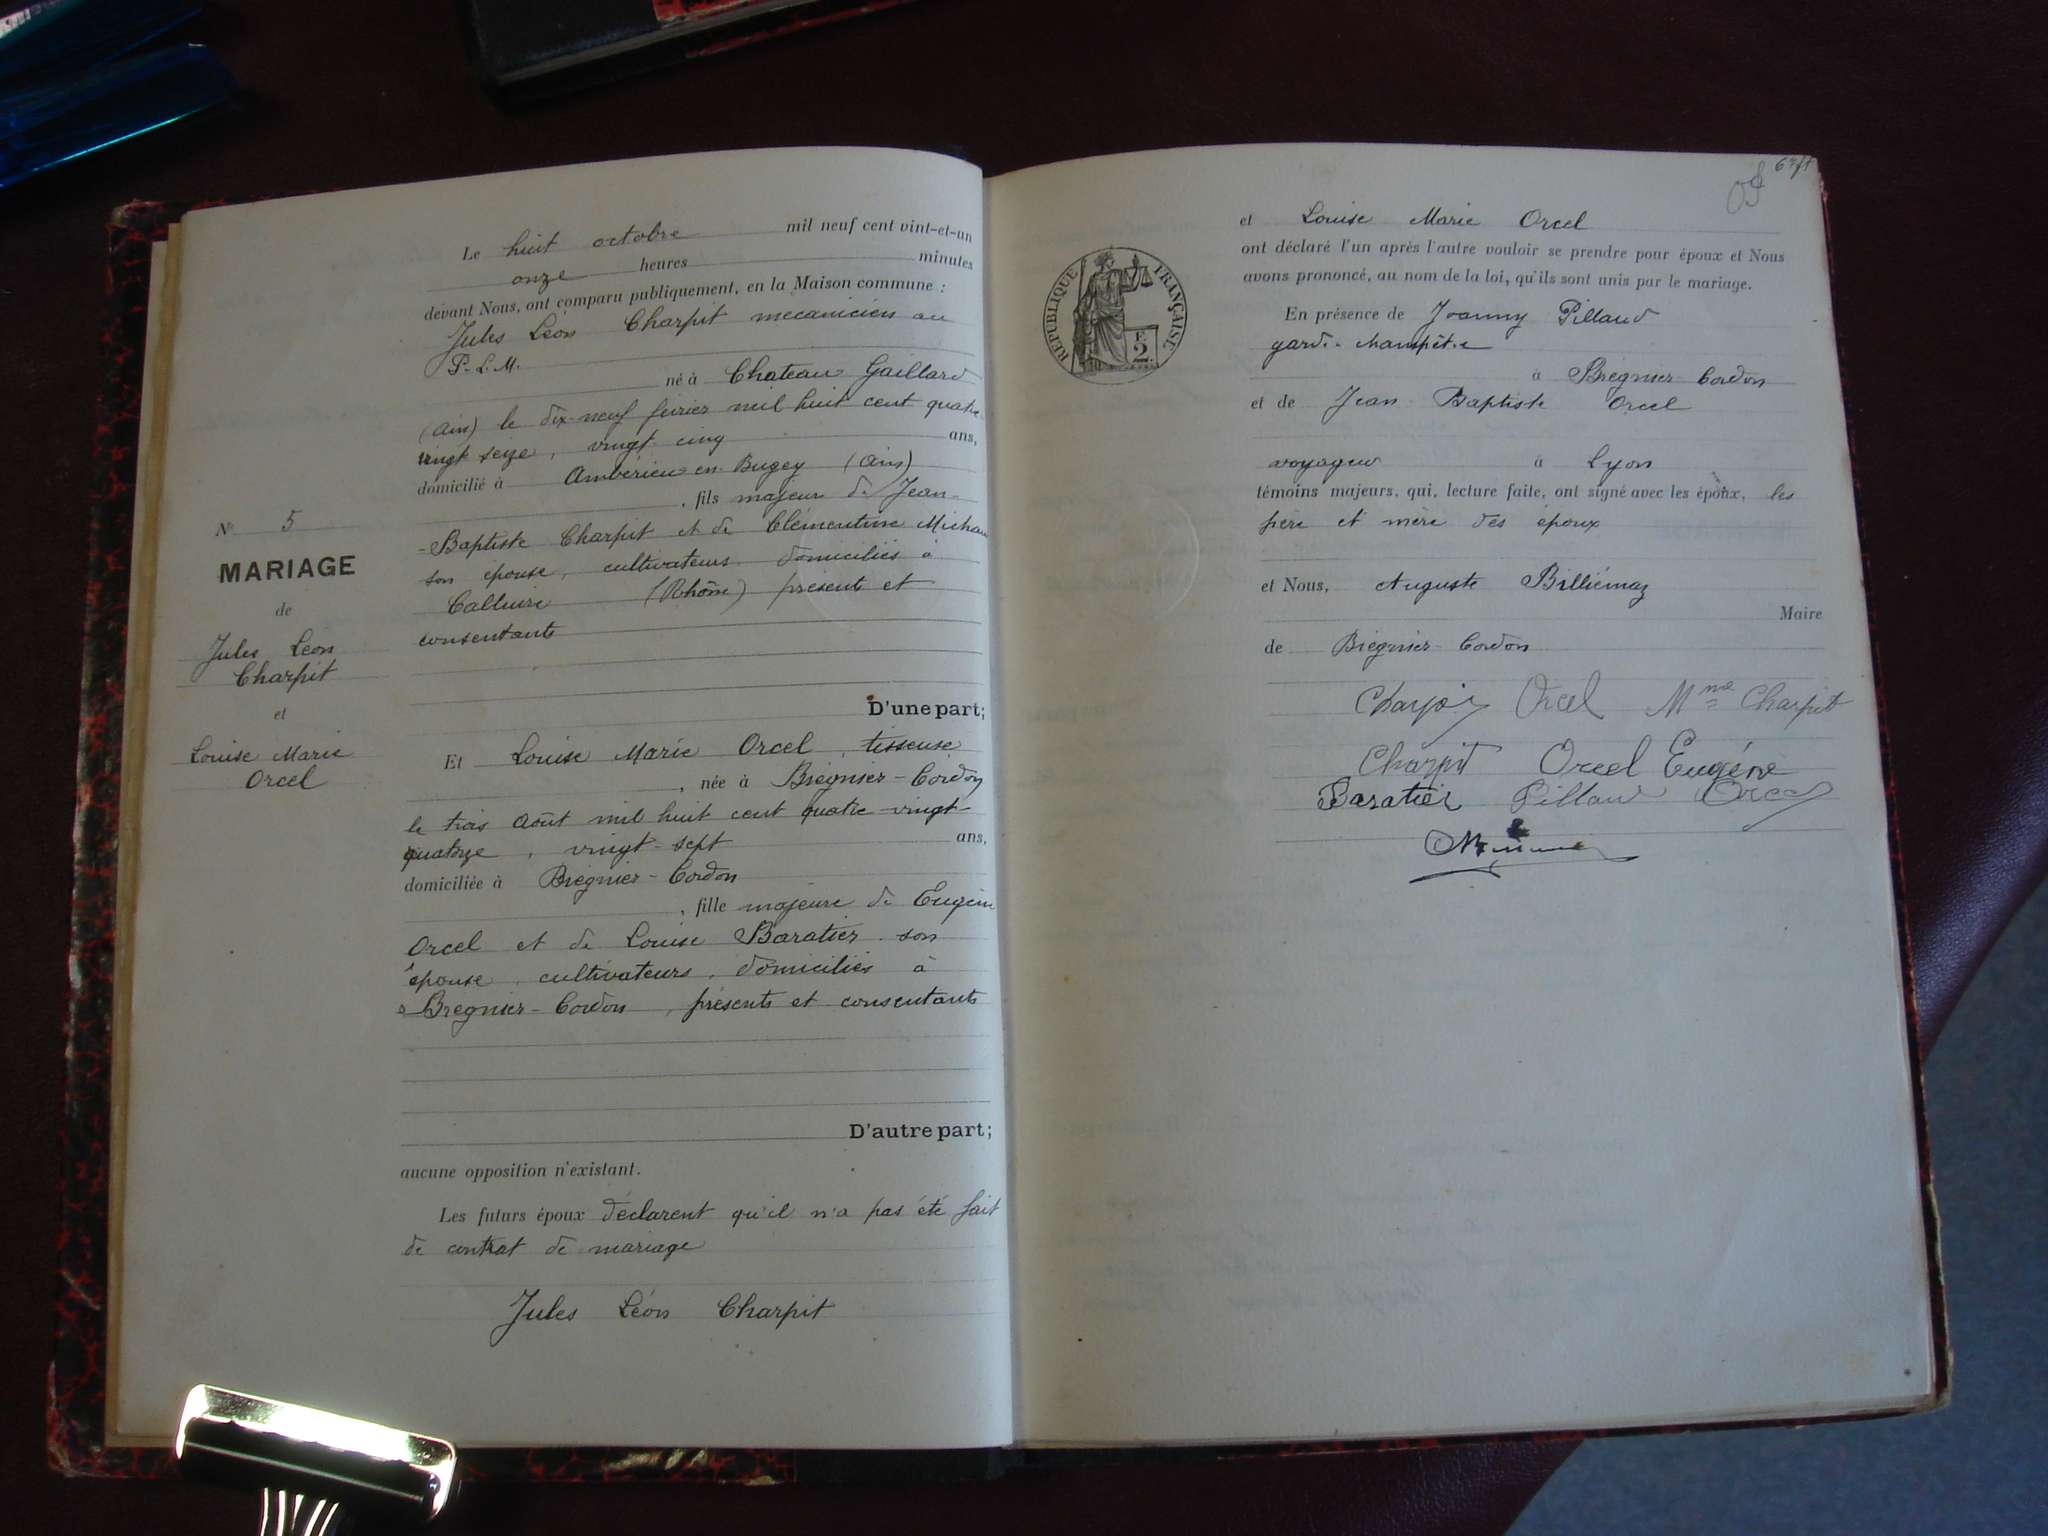 Le huit octobre mil neuf cent vint-et-un
onze heures minutes
devant Nous, ont comparu publiquement, en la Maison commune :
Jules Léon Charpit mécanicien au
P.L.M.
né à Chateau Gaillard
(Ain) le dix-neuf février mil huit cent quatre
vingt seize, vingt cinq ans,
domicilié à Ambérieu-en-Bugey (Ain)
, fils majeur de Jean-
-Baptiste Charpit et de Clémentine Michau
son épouse, cultivateurs domiciliés à
Calluire (Rhône) present et
consentants
D'une part;
N° 5
MARIAGE
de
Jules Léon
Charpit
et
Louise Marie
Orcel
Et Louise Marie Orcel, tisseuse
, née à Brégnier-Cordon
le trois Août mil huit cent quatre-vingt-
quatorze, vingt-sept ans,
domiciliée à Brégnier-Cordon
, fille majeure de Eugène
Orcel et de Louise Baratier son
épouse, cultivateurs, domiciliés à
Brégnier-Cordon, présents et consentants
D'autre part;
aucune opposition n'existant.
Les futurs époux déclarent qu'il n'a pas été fait
de contrat de mariage
Jules Léon Charpit
et Louise Marie Orcel
ont déclaré l'un après l'autre vouloir se prendre pour époux et Nous
avons prononcé, au nom de la loi, qu'ils sont unis par le mariage.
RÉPUBLIQUE FRANÇAISE
2
En présence de Joanny Pillaud
garde-champêtre
à Brégnier-Cordon
et de Jean Baptiste Orcel
voyageur à Lyon
témoins majeurs, qui, lecture faite, ont signé avec les époux, les
père et mère des époux
et Nous, Auguste Billiémaz
Maire
de Brégnier-Cordon
Charpit Orcel Mme Charpit
Charpit Orcel Eugéne
Baratier Pillaud Orcel